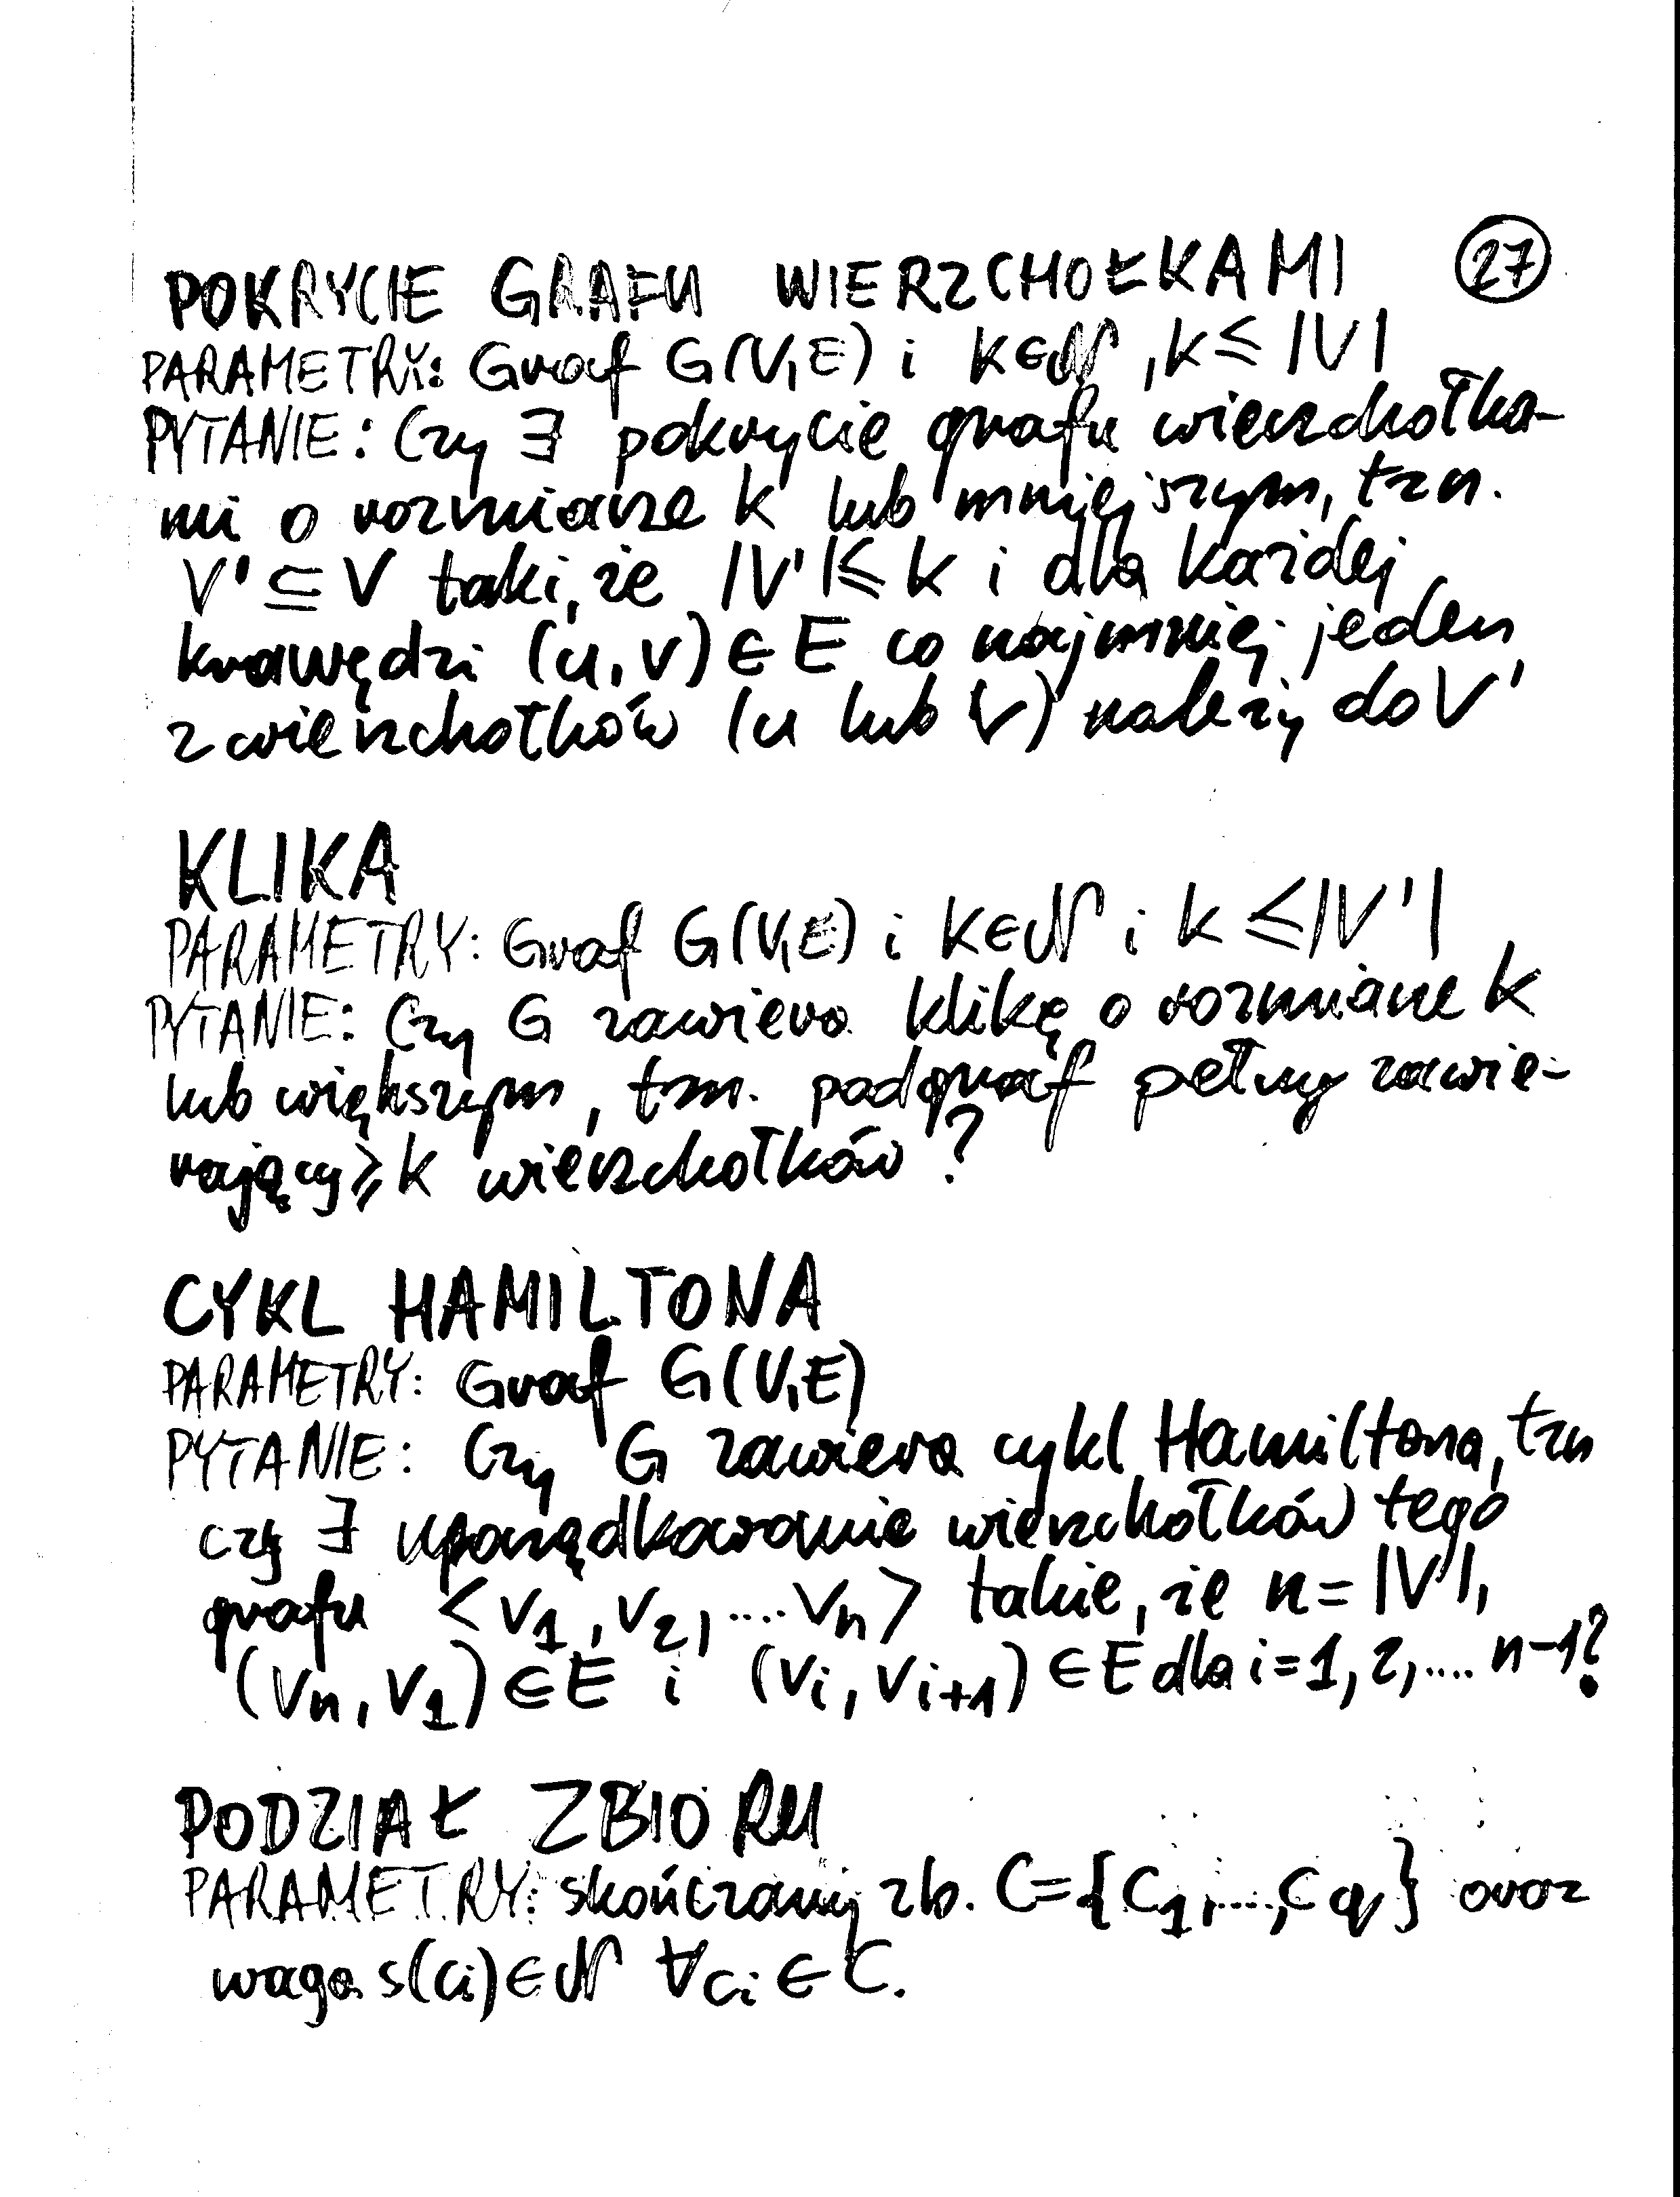 POKRYCIE GRAFU WIERZCHOŁKAMI 27
PARAMETRY: Graf G(V,E) i K∈N, K≤|V|
PYTANIE: Czy ∃ pokrycie grafu wierzchołka-
mi o rozmiarze K lub mniejszym, tzn.
V'⊆V taki, że |V'|≤K i dla każdej
krawędzi (u,v)∈E co najmniej jeden
z wierzchołków (u lub v) należy do V'
KLIKA
PARAMETRY: Graf G(V,E) i K∈N i K≤|V'|
PYTANIE: Czy G zawiera klikę o rozmiarze K
lub większym, tzn. podgraf pełny zawie-
rający ≥ K wierzchołków?
CYKL HAMILTONA
PARAMETRY: Graf G(V,E)
PYTANIE: Czy G zawiera cykl Hamiltona, tzn
czy ∃ uporządkowanie wierzchołków tego
grafu <v1, v2, .... vn> takie, że n=|V|,
(vn, v1)∈E i (vi, vi+1)∈E dla i=1, 2, .... n-1?
PODZIAŁ ZBIORU
PARAMETRY: skończony zb. C={c1,....,cq} oraz
waga s(ci)∈N ∀ci∈C.